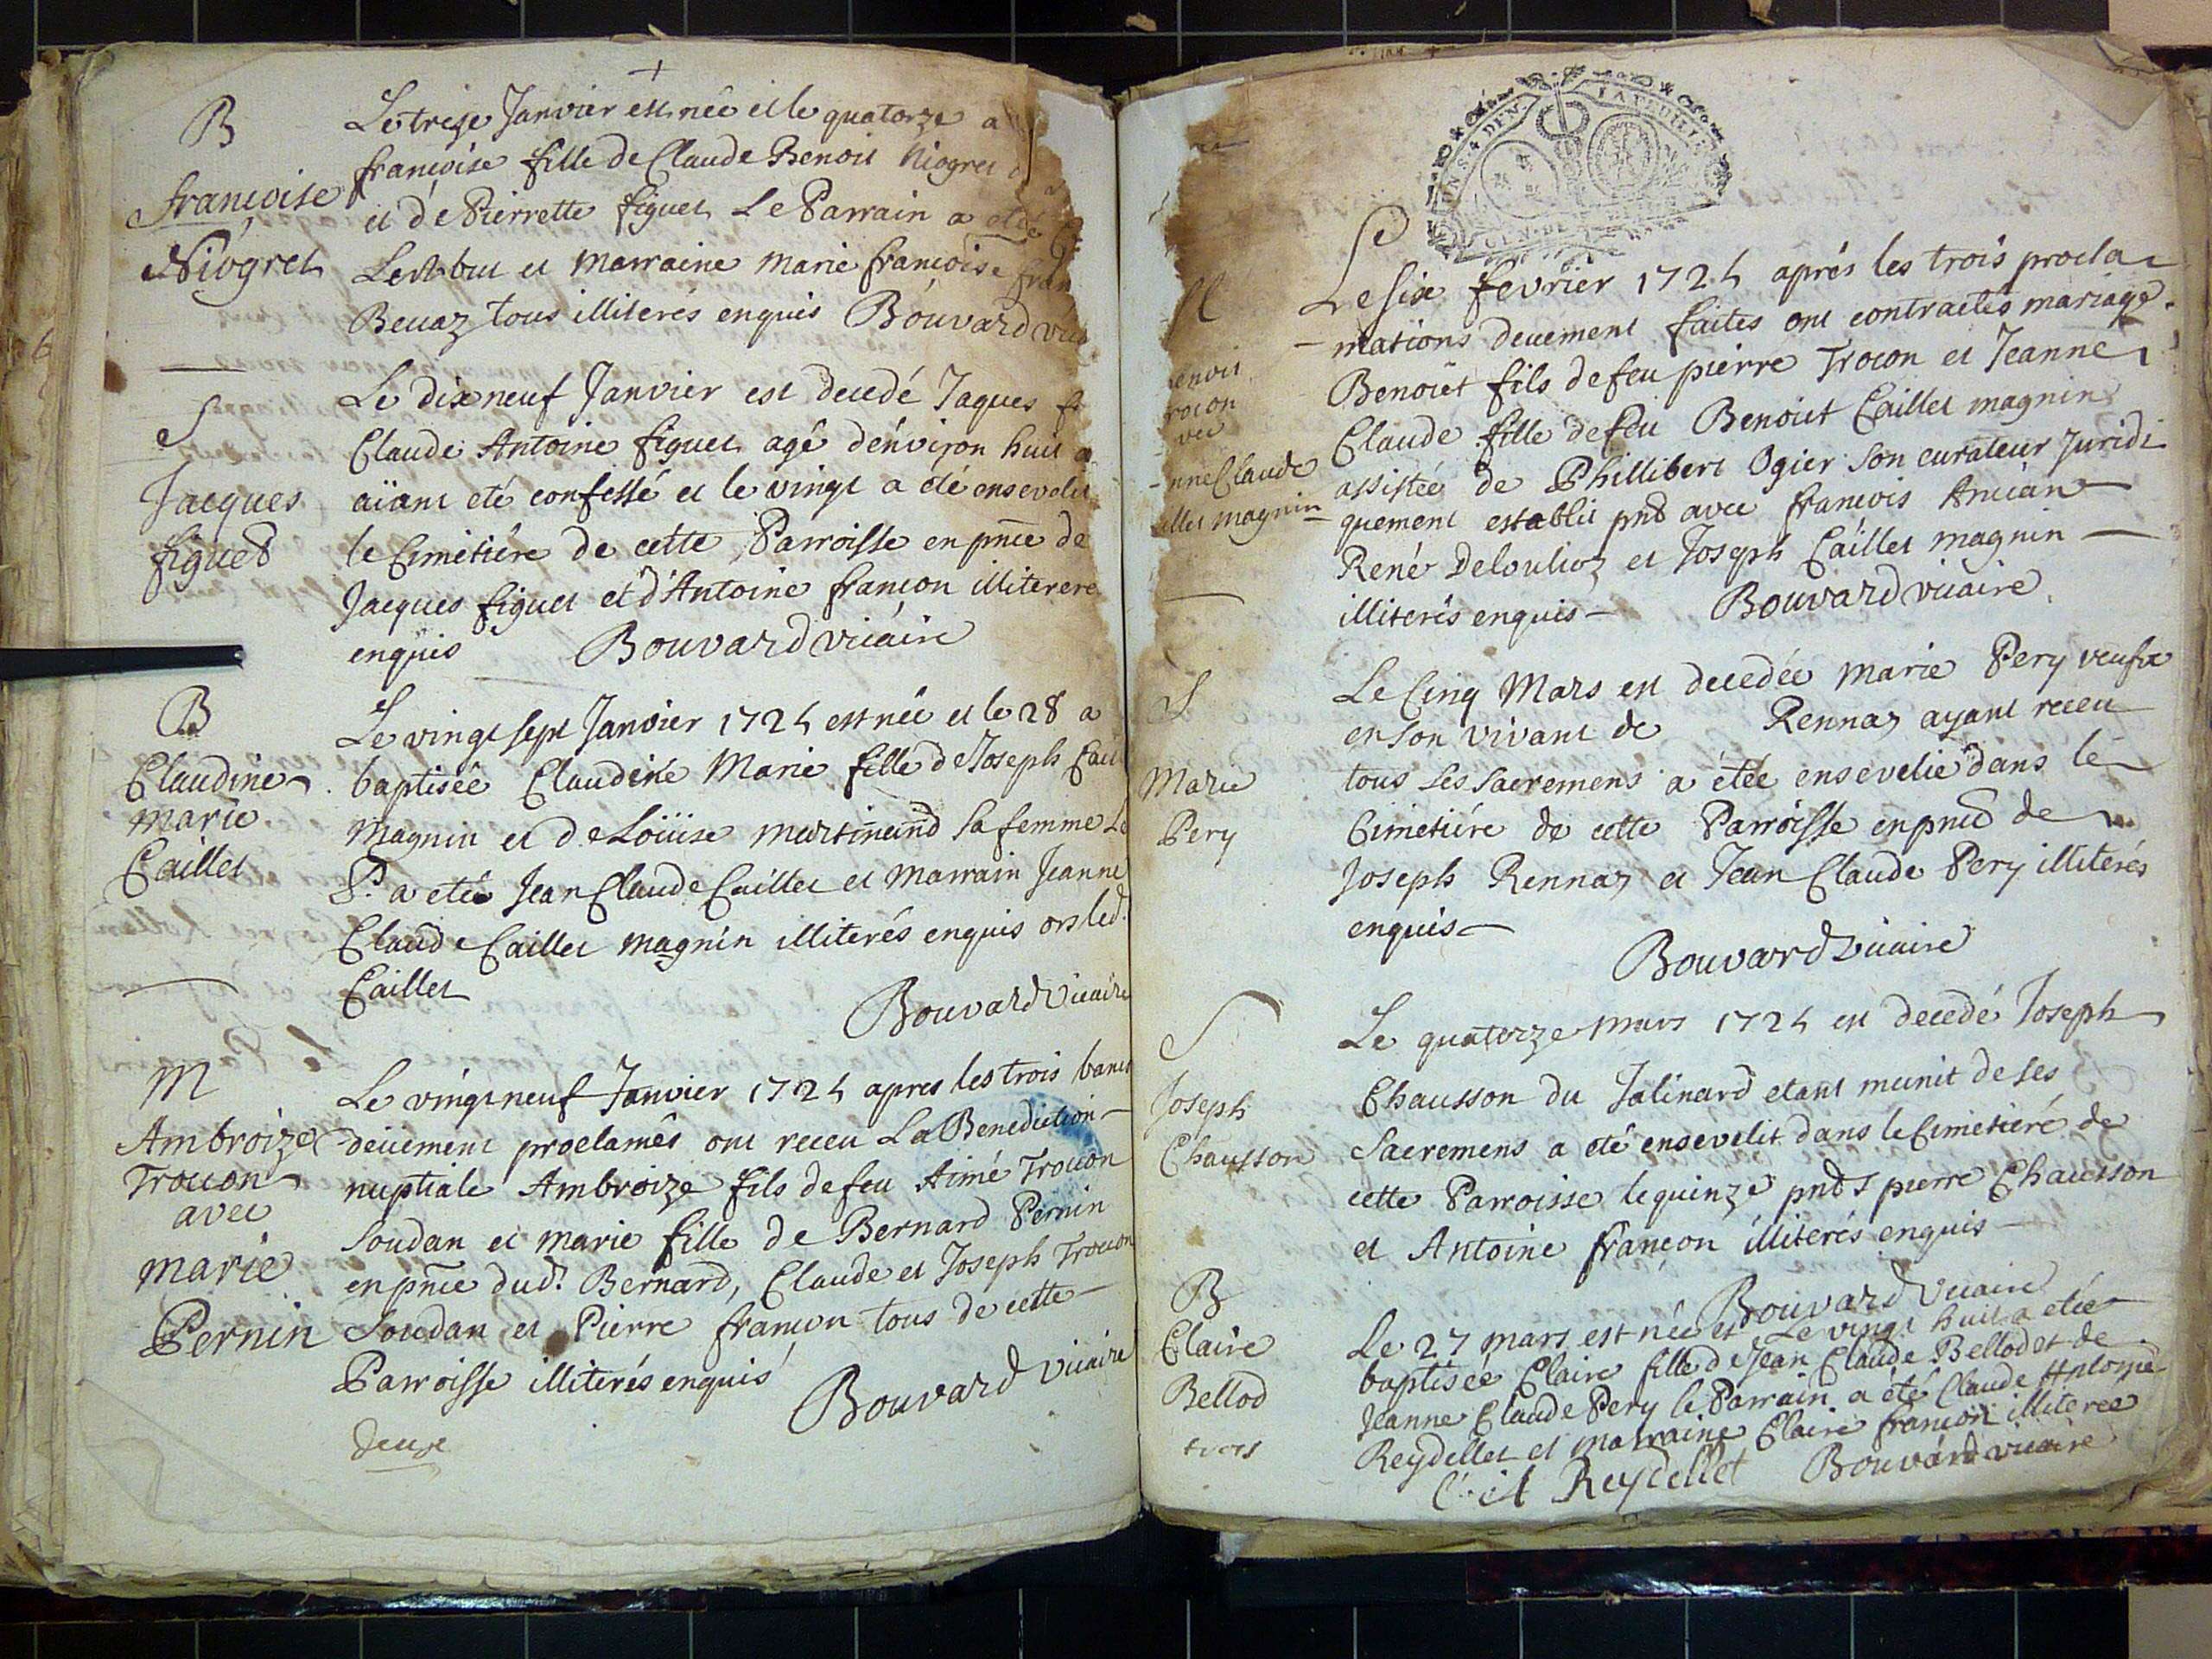 B
françoise
Niogret
Le treize Janvier est née et le quatorze a
françoise fille de Claude Benoit Niogret
et de Pierrette figuet Le Parrain a etéé
et marraine marie françoise fran
Beuaz tous illiterés enquis Bouvard vic
S
Jacques
figuet
Le dix neuf Janvier est decedé Jaques fi
Claude Antoine figuet agé d'énviron huit a
aïant eté confessé et le vingt a eté ensevelit
le Cimétiére de cette Parroisse en pnce de
Jacques figuet et d'Antoine françon illiterere
enquis Bouvard vicaire
B
Claudine
marie
Caillet
Le vingt sept Janvier 1724 est née et le 28 a
baptisée Claudine Marie fille de Joseph Cail
Magnin et de Loüise martinand sa femme Le
P. a etée Jean Claude Caillet et marrain Jeanne
Claude Caillet magnin illiterés enquis ors led.
Caillet
Bouvard Vicaire
M
Ambroize
Trocon
avec
marie
Pernin
Le vingt neuf Janvier 1724 apres les trois bancs
deüement proclamés ont receu La Benediction
nuptiale Ambroize fils de feu Aimé Trocon
Soudan et marie fille de Bernard Pernin
en pnce dud. Bernard, Claude et Joseph Trocon
Soudan et Pierre françon tous de cette
Parroisse illiterés enquis
Bouvard vicaire
deuxe
IN. S. 4 DEN. LA FEUILLE
GEN. DE
M
enoit
rocon
vec
nne Claude
illet magnin
Le six fevrier 1724 aprés les trois procla
mations deuement faites ont contractés mariage
Benoiet fils de feu pierre Trocon et Jeanne
Claude fille de feu Benoiet Caillet magnin
assistée de Phillibert Ogier son curateur Juridi
quement establit pnt avec françois Ancian
René Delouhoz et Joseph Caillet magnin
illiterés enquis Bouvard vicaire
S
Marie
Pery
Le Cinq Mars est decedée marie Pery veufve
en son vivant de Rennaz ayant receu
tous Les sacremens a etée ensevelie dans le
Cimetiére de cette Parroisse en pnce de
Joseph Rennaz et Jean Claude Pery illiterés
enquis
Bouvard vicaire
S
Joseph
Chausson
Le quatorze mars 1724 est decedé Joseph
Chausson du Jalinard etant munit de ses
Sacremens a eté ensevelit dans le Cimetieré de
cette Parroisse le quinze pnts pierre Chausson
et Antoine françon illiterés enquis
Bouvard vicaire
B
Claire
Bellod
trois
Le 27 mars est née et Le vingt huit a etée
baptisée Claire fille de Jean Claude Bellod et de
Jeanne Claude Pery le Parrain a été Claude Antoine
Reydellet et marraine Claire françon illiterée
C. A Reydellet Bouvard vicaire